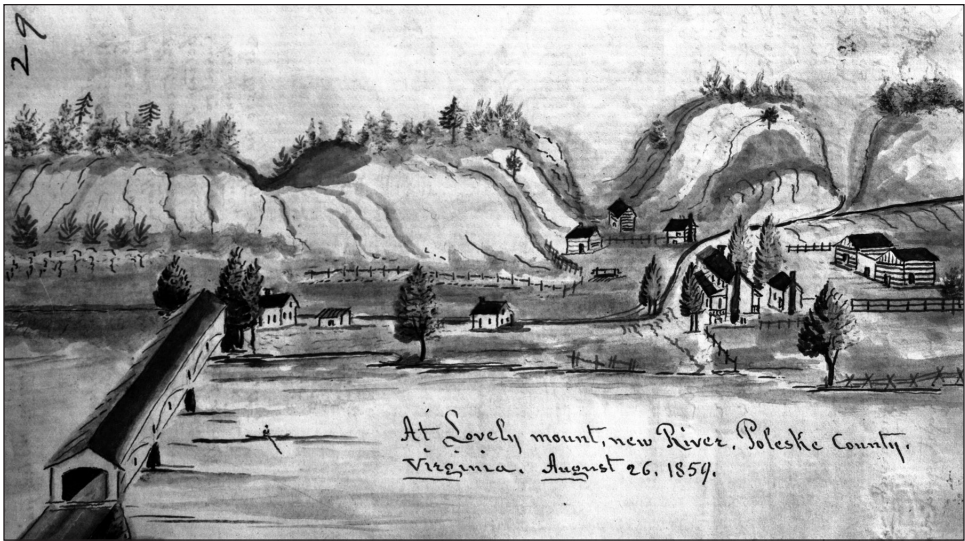 29
At Lovely mount, new River, Poleske County.
Virginia. August 26. 1859.